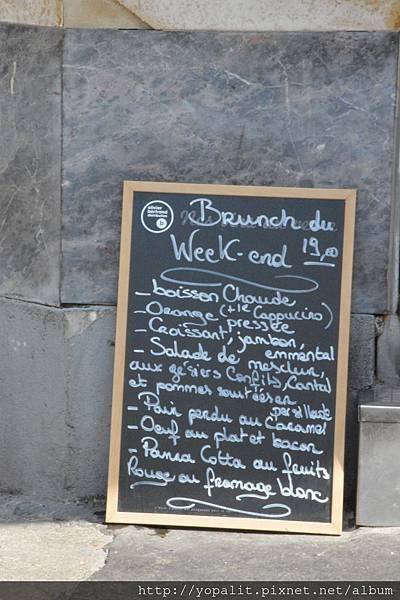 olivier
bertrand
distribution
b
Brunch du
Week-end 19,00
- boisson Chaude
(+1€ Cappuccino)
- Orange pressée
- Croissant, jambon,
emmental
- Salade de mesclun,
aux gésiers Confits, Cantal
et pommes sautées en
persillade
- Pain perdu au Caramel
- Oeuf au plat et bacon
- Panna Cotta au fruits
Rouge ou fromage blanc
http://yopalit.pixnet.net/album